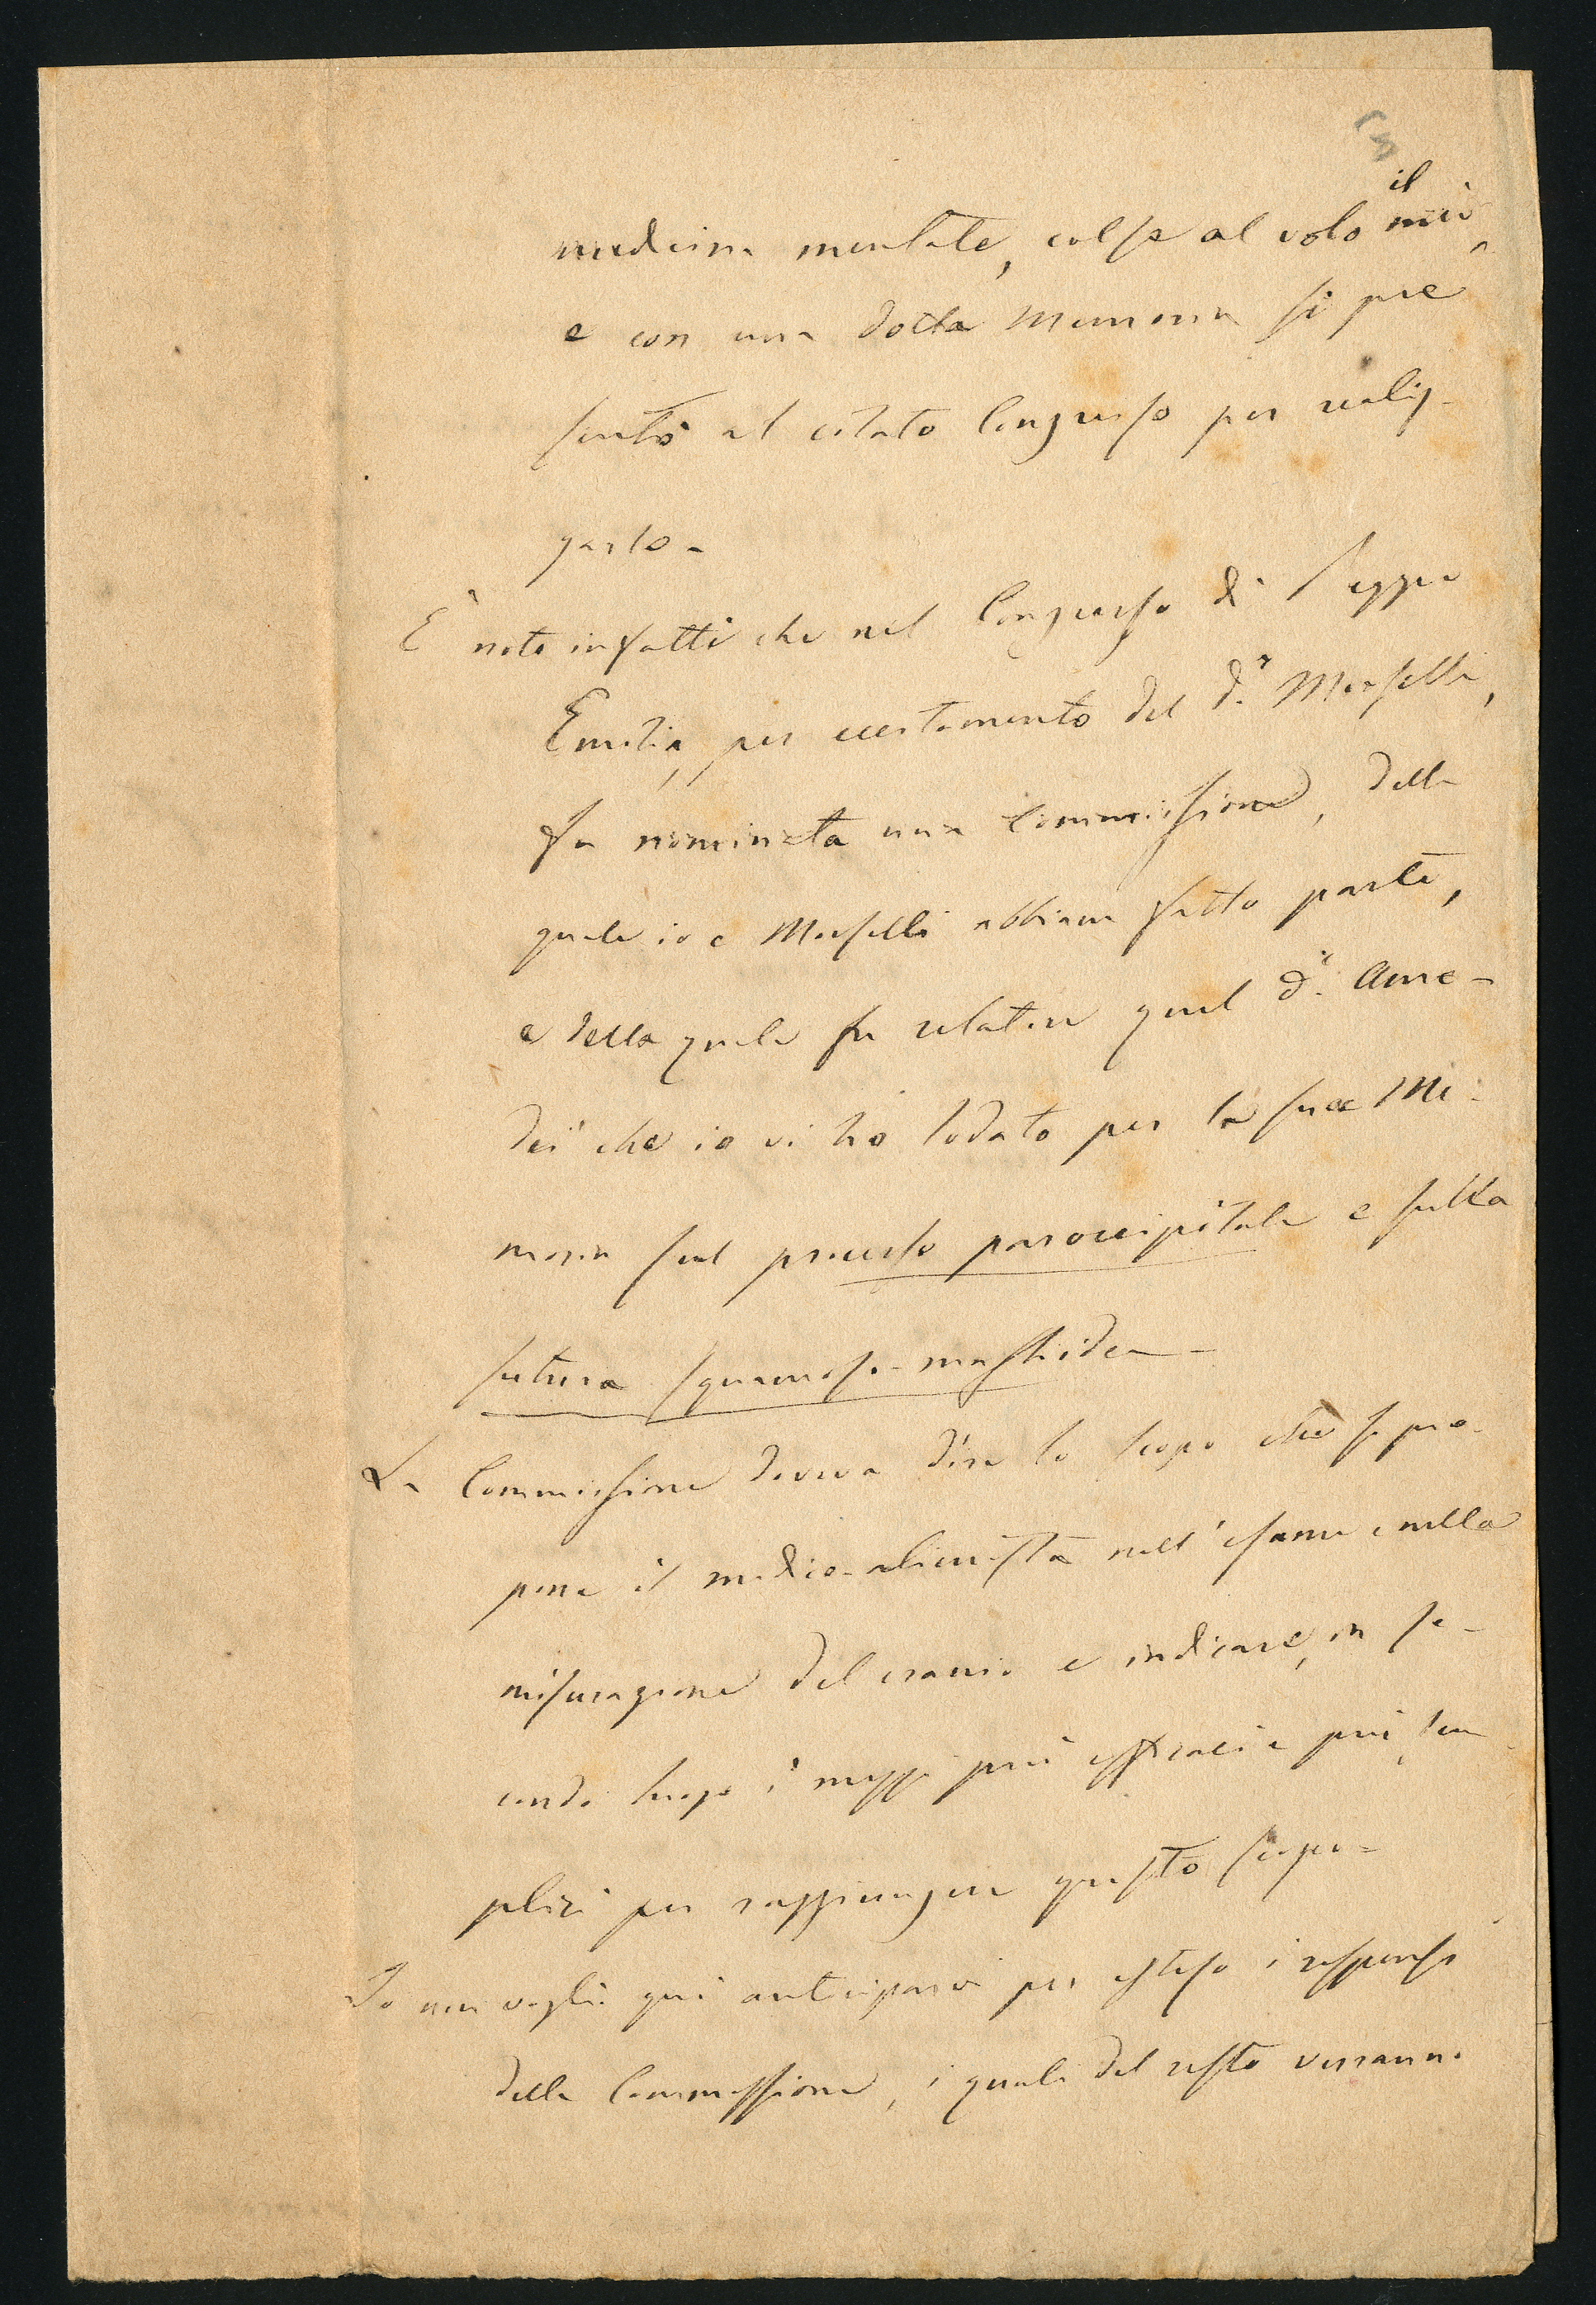 il
medicina mentale, colse al volo mio
e con una dotta Memoria si pre
sentò al citato Congresso per realiz-
zarlo-
È noto infatti che nel Congresso di Reggio
Emilia, per eccitamento del d.r Morselli,
fu nominata una Commissione, della
quale io e Morselli abbiam fatto parte,
e della quale fu relatore quel d.r Ame-
dei che io vi ho lodato per la sua Me-
moria sul processo paroccipitale e sulla
sutura squamoso-mastoidea-
La Commissione doveva dire lo scopo che si pro-
pone il medico-alienista nell'esame e nella
misurazione del cranio e indicare, in se-
condo luogo i mezzi più efficaci e più sem
plici per raggiungere questo scopo-
Io non voglio qui anticiparvi per esteso i responsi
della Commissione, i quali del resto verranno